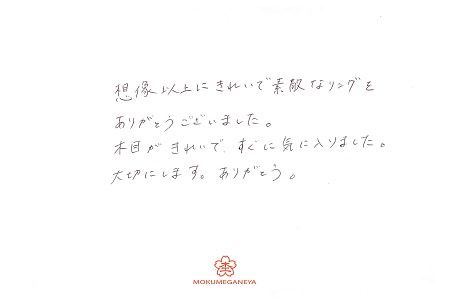 想像以上にきれいで素敵なリングを
ありがとうございました。
木目がきれいで、すぐに気に入りました。
大切にします。ありがとう。
MOKUMEGANEYA